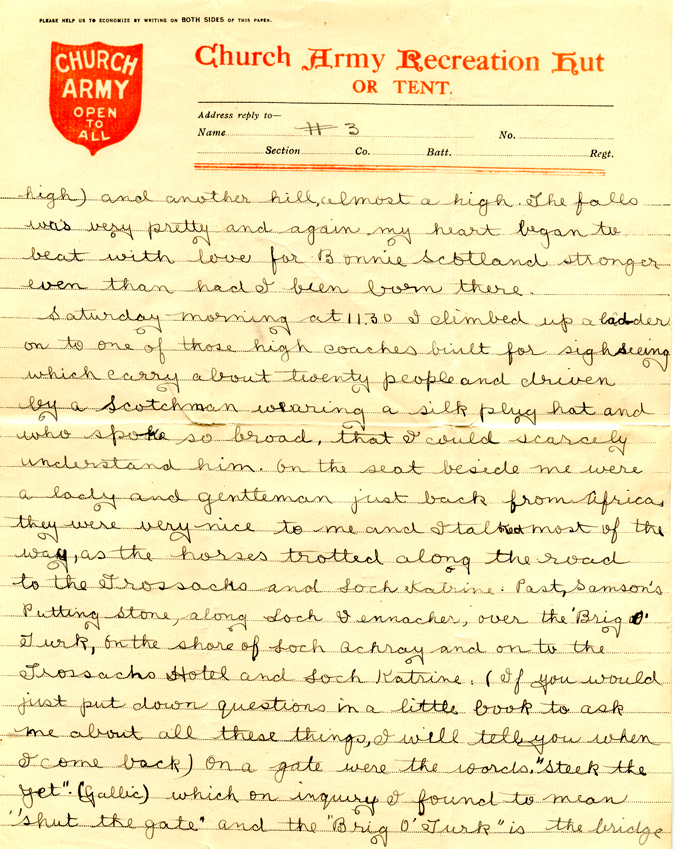 PLEASE HELP US TO ECONOMIZE BY WRITING ON BOTH SIDES OF THIS PAPER.
CHURCH
ARMY
OPEN
TO
ALL
Church Army Recreation Hut
OR TENT.
Address reply to—
Name # 3 No.
Section Co. Batt. Regt.
high) and another hill, almost a high. The falls
was very pretty and again my heart began to
beat with love for Bonnie Scotland stronger
even than had I been born there.
Saturday morning at 11.30 I climbed up a ladder
on to one of those high coaches built for sighseeing
which carry about twenty people and driven
by a Scotchman wearing a silk plug hat and
who spoke so broad, that I could scarcely
understand him. On the seat beside me were
a lady and gentleman just back from Africa,
they were very nice to me and I talked most of the
way, as the horses trotted along the road
to the Trossachs and Loch Katrine. Past, Samson's
Putting Stone, along Loch Vennacher, over the 'Brig O'
Turk, on the shore of Loch Achray and on to the
Trossachs Hotel and Loch Katrine. (If you would
just put down questions in a little book to ask
me about all these things, I will tell you when
I come back) On a gate were the words. "Steek the
yet". (Gallic) which on inquiry I found to mean
"shut the gate" and the "Brig O'Turk" is the bridge